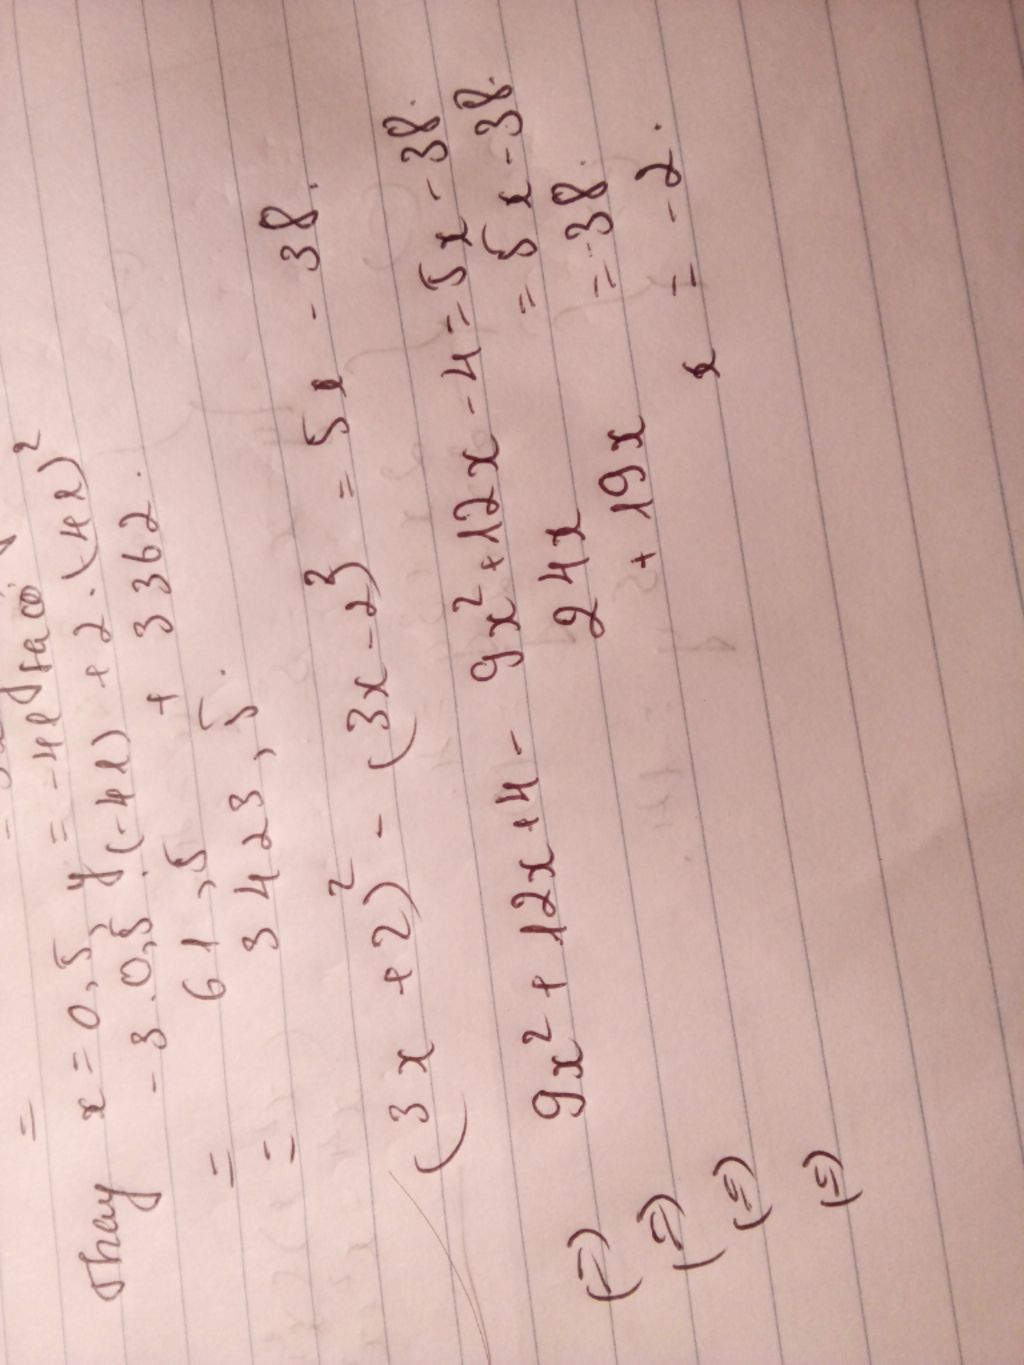 =
Thay x = 0,5, y = -41 ta có:
-3.0,5.(-41) + 2.(41)²
= 61,5 + 3362.
= 3423,5.
(3x +2)² - (3x-2)² = 5x - 38.
(=) 9x² + 12x + 4 - 9x² + 12x - 4 = 5x - 38.
(=) 24x = 5x - 38.
(=) + 19x = -38.
(=) x = -2.